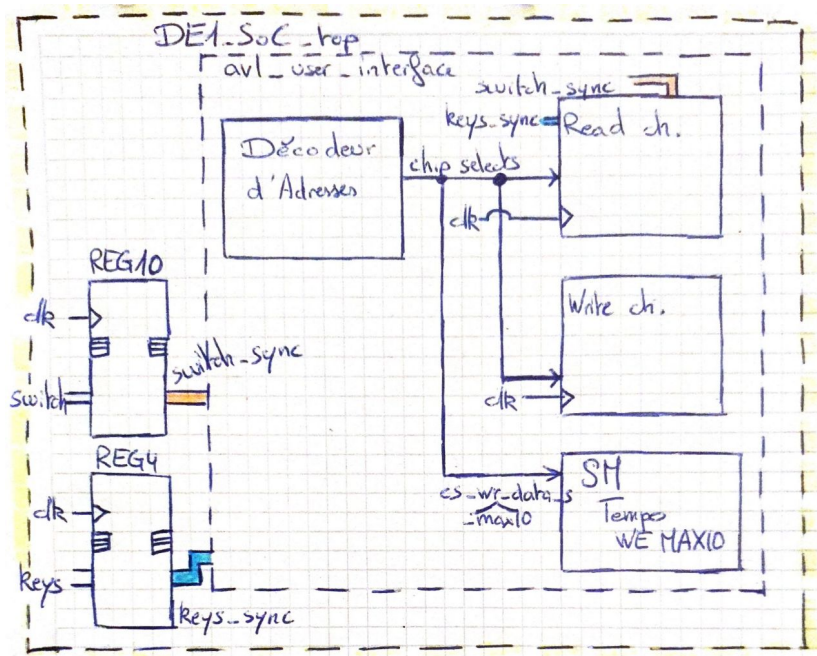 DE1_SoC_top
avl_user_interface
switch_sync
keys_sync
Read ch.
Décodeur
d'Adresses
chip selects
clk
REG10
clk
switch_sync
switch
Write ch.
clk
REG4
clk
keys
keys_sync
cs_wr_data_s
_max10
SM
Tempo
WE MAX10